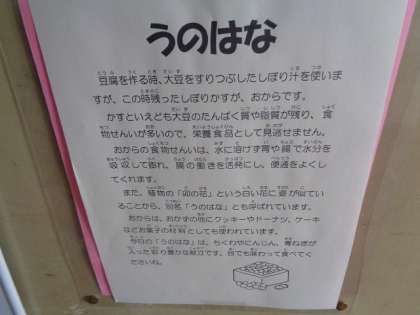 うのはな
豆腐を作る時、大豆をすりつぶしたしぼり汁を使いま
すが、この時残ったしぼりかすが、おからです。
かすといえども大豆のたんぱく質や脂質が残り、食
物せんいが多いので、栄養食品として見逃せません。
おからの食物せんいは、水に溶けず胃や腸で水分を
吸収して膨れ、腸の働きを活発にし、便通をよくし
てくれます。
また、植物の「卯の花」という白い花に姿が似てい
ることから、別名「うのはな」とも呼ばれています。
おからは、おかずの他にクッキーやドーナツ、ケーキ
などお菓子の材料としても使われています。
今日の「うのはな」は、ちくわやにんじん、青ねぎが
入った彩り豊かな献立です。何でも味わって食べてく
ださいね。